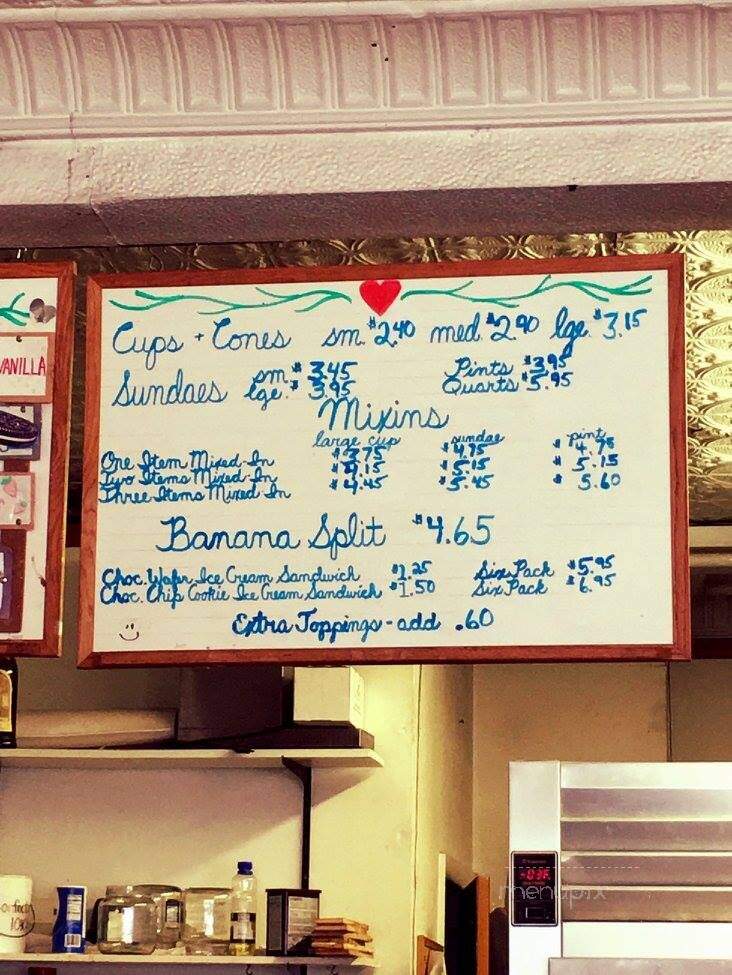 Cups + Cones sm. $2.40 med. $2.90 lge. $3.15
Sundaes sm. $3.45 lge. $3.95 Pints $3.95 Quarts $5.95
Mixins
large cup sundae pint
One Item Mixed-In $3.75 $4.75 $4.75
Two Items Mixed-In $4.15 $5.15 $5.15
Three Items Mixed In $4.45 $5.45 $5.60
Banana Split $4.65
Choc. Wafer Ice Cream Sandwich $1.25 Six Pack $5.95
Choc. Chip Cookie Ice Cream Sandwich $1.50 Six Pack $6.95
Extra Toppings - add .60
VANILLA
menupix